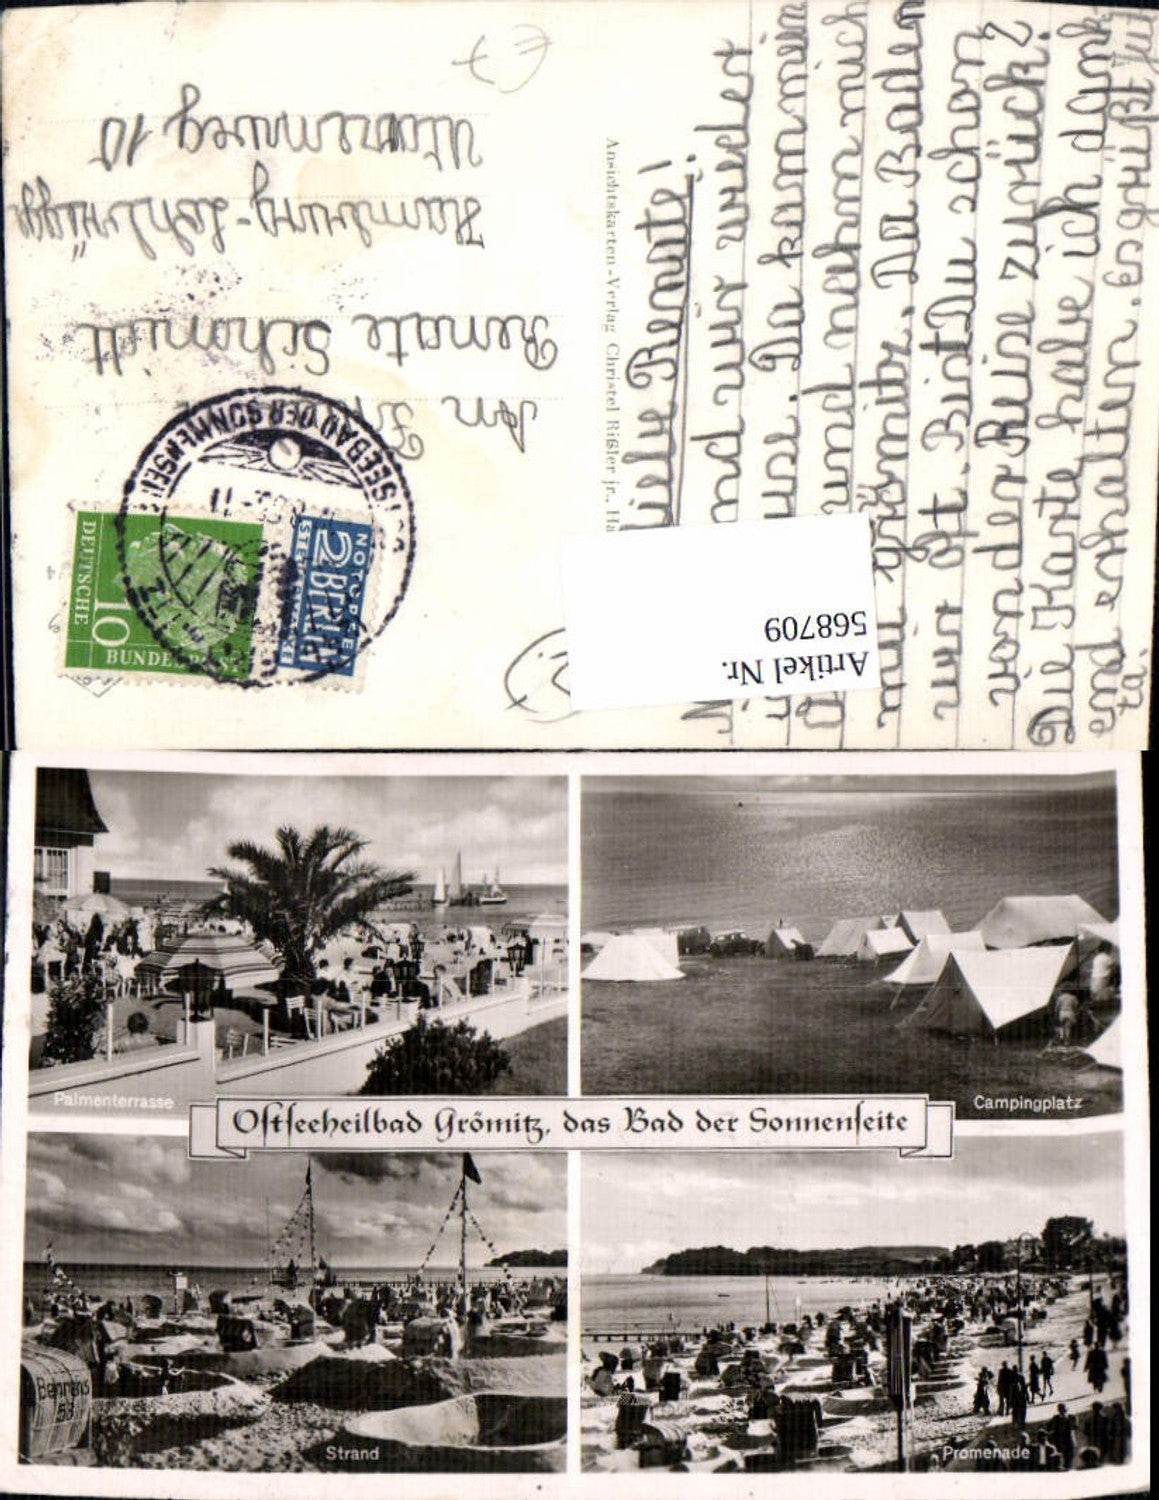 An Frl.
Renate Schmidt
Hamburg-Lohbrügge
Utorenweg 10
Ansichtskarten-Verlag Christel Rißler jr., Ha
DEUTSCHE
BUNDESPOST
10
NOTOPFER
2 BERLIN
STEUERMARKE
OSTSEEBAD DER SONNENSEITE
Artikel Nr.
568709
Liebe Renate!
sind wir wieder
Hause. Da kam mein
und nahm mich
mit nach Grömitz. Da Baden
wir oft. Bist Du schon
von der Reise zurück?
Die Karte habe ich dank
end erhalten. Es grüßt Jut
ta.
Palmenterrasse
Campingplatz
Ostseeheilbad Grömitz, das Bad der Sonnenseite
Behrens
53
Strand
Promenade